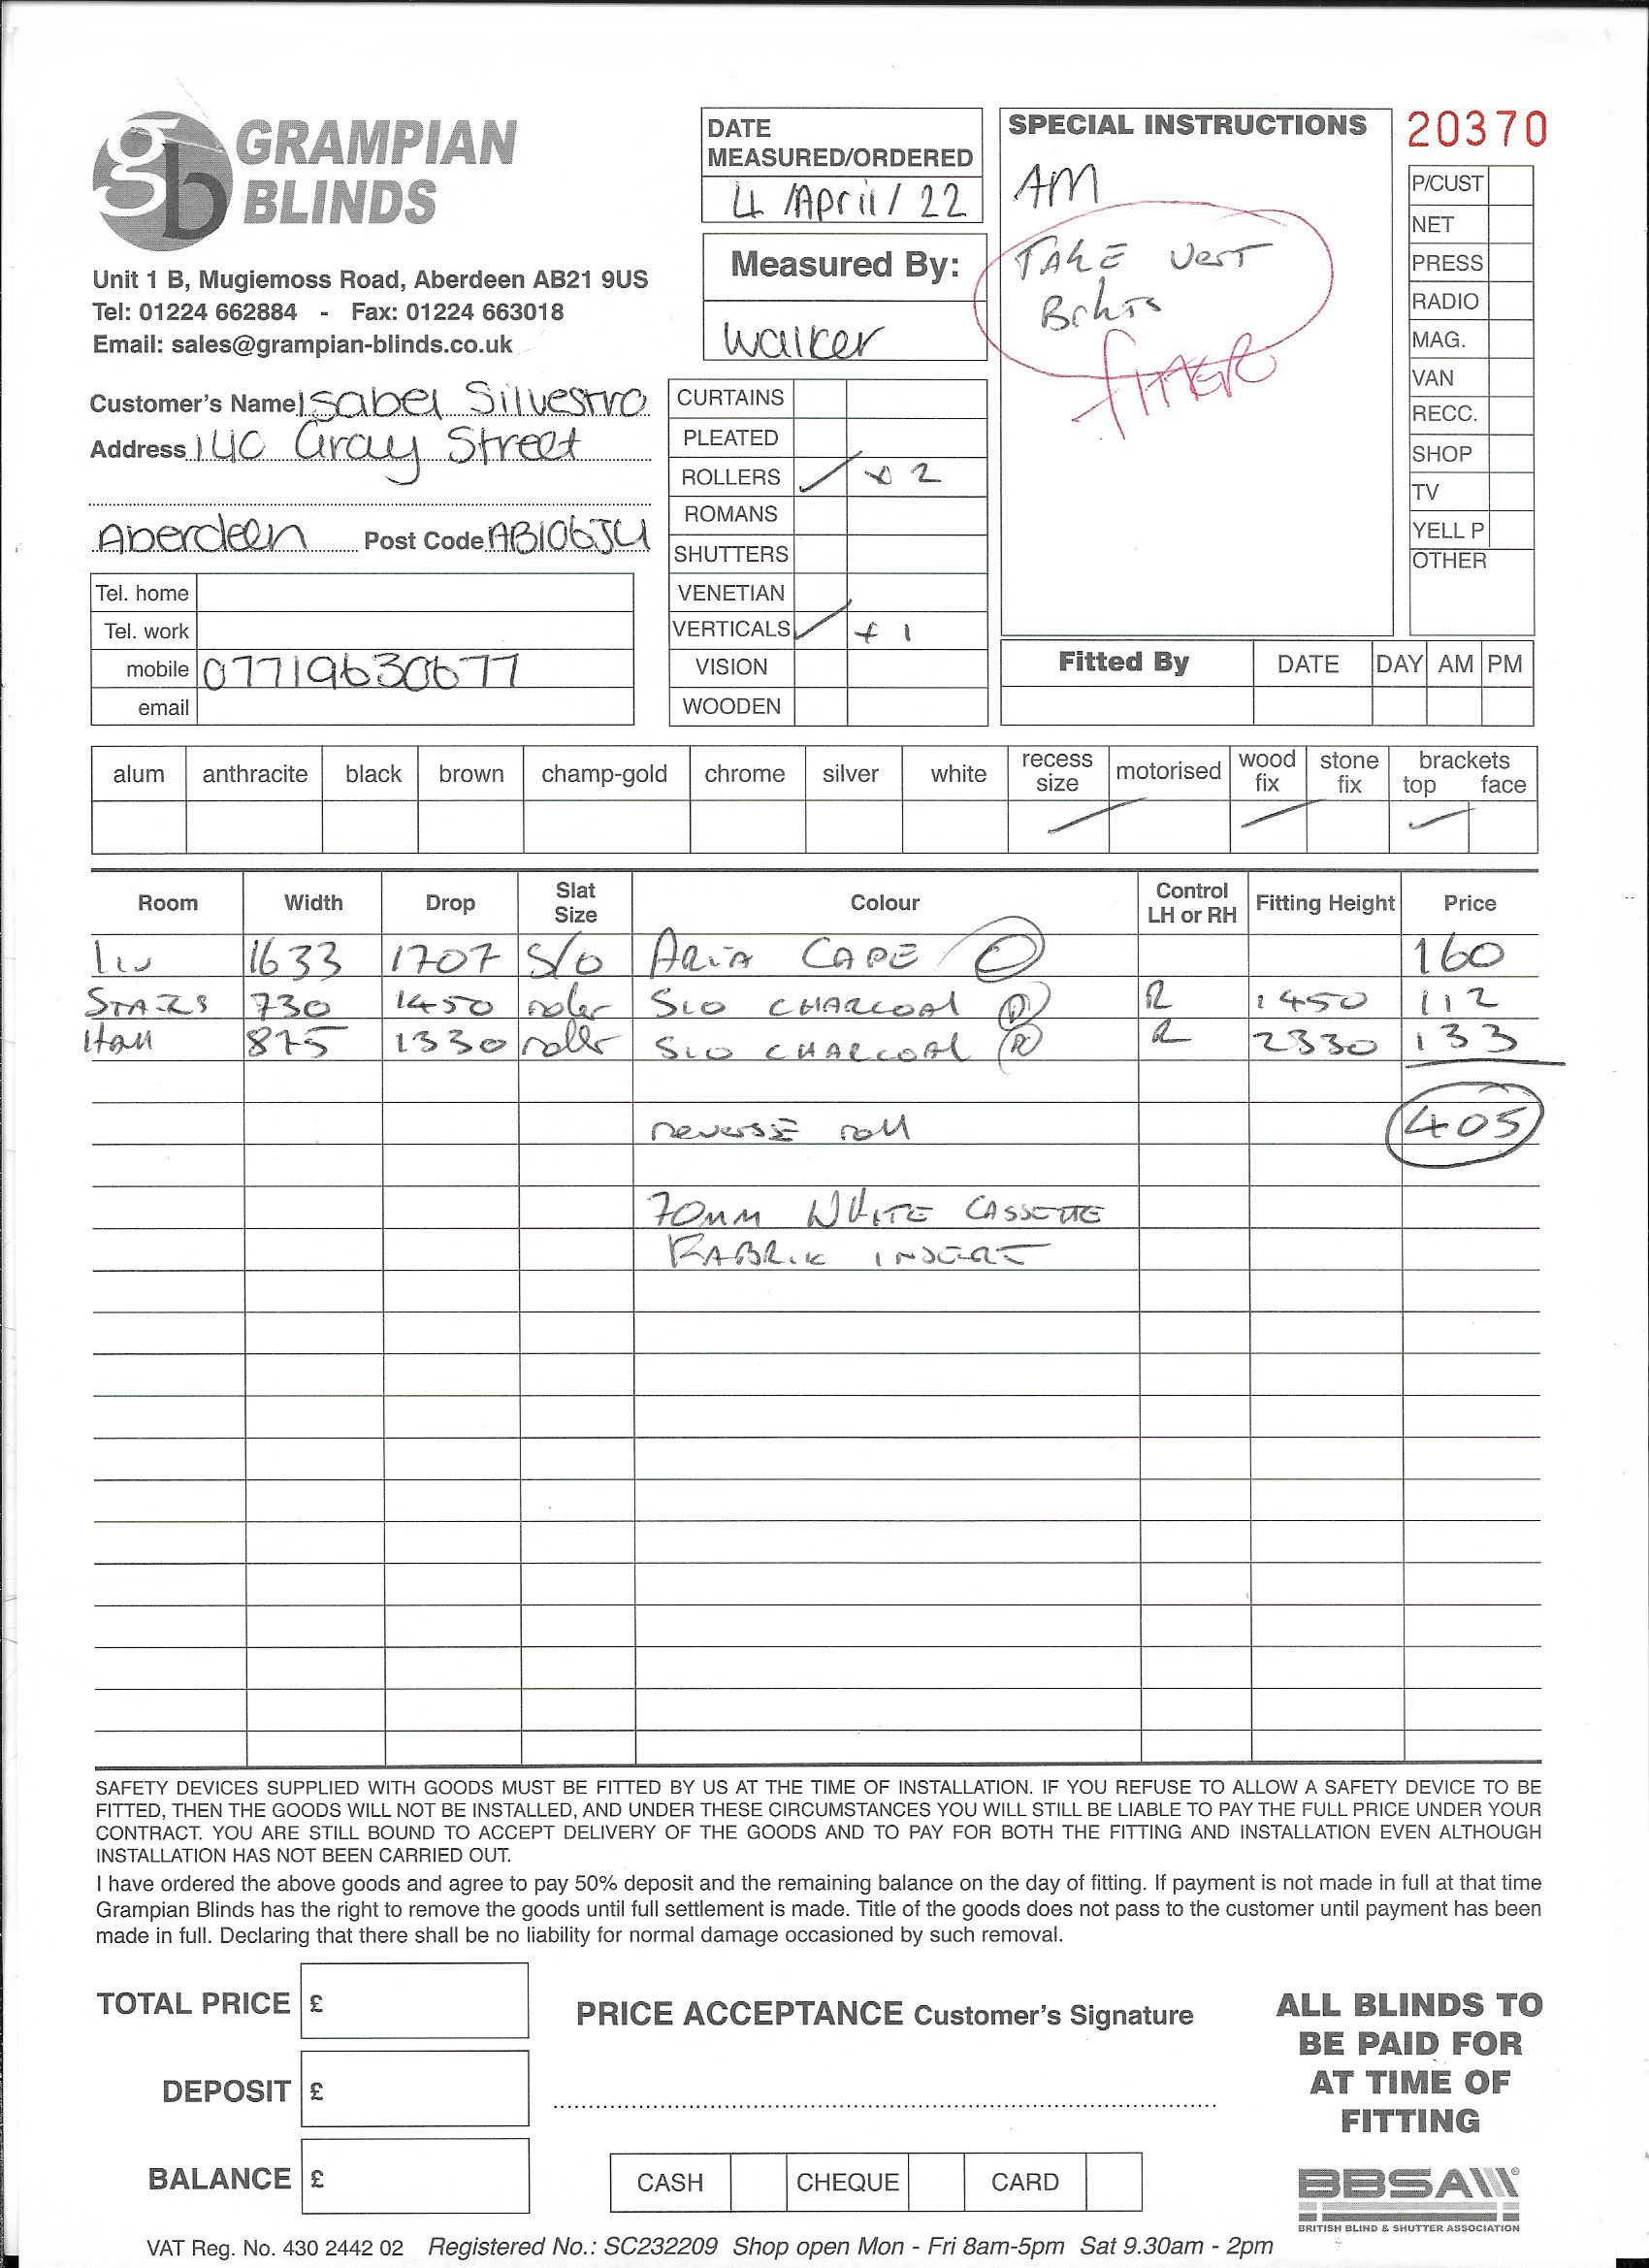 GRAMPIAN
BLINDS
Unit 1 B, Mugiemoss Road, Aberdeen AB21 9US
Tel: 01224 662884 - Fax: 01224 663018
Email: sales@grampian-blinds.co.uk
DATE
MEASURED/ORDERED
4 /April / 22
Measured By:
Walker
SPECIAL INSTRUCTIONS
AM
TAKE Vert
Brkts
20370
P/CUST
NET
PRESS
RADIO
MAG.
VAN
RECC.
SHOP
TV
YELL P
OTHER
Customer's Name Isabel Silvestro
Address 140 Gray Street
Aberdeen Post Code AB106JU
Tel. home
Tel. work
mobile 07719630677
email
CURTAINS
PLEATED
ROLLERS ✓ x 2
ROMANS
SHUTTERS
VENETIAN
VERTICALS ✓ + 1
VISION
WOODEN
Fitted By DATE DAY AM PM
alum anthracite black brown champ-gold chrome silver white recess size motorised wood fix stone fix brackets top face
Room Width Drop Slat Size Colour Control LH or RH Fitting Height Price
Liv 1633 1707 S/O ARIA CAPE C 160
STAIRS 730 1450 roller SLO CHARCOAL R 1450 112
Hall 875 1330 roller SLO CHARCOAL R 2330 133
reverse roll 405
70mm WHITE CASSETTE
FABRIK INSERT
SAFETY DEVICES SUPPLIED WITH GOODS MUST BE FITTED BY US AT THE TIME OF INSTALLATION. IF YOU REFUSE TO ALLOW A SAFETY DEVICE TO BE
FITTED, THEN THE GOODS WILL NOT BE INSTALLED, AND UNDER THESE CIRCUMSTANCES YOU WILL STILL BE LIABLE TO PAY THE FULL PRICE UNDER YOUR
CONTRACT. YOU ARE STILL BOUND TO ACCEPT DELIVERY OF THE GOODS AND TO PAY FOR BOTH THE FITTING AND INSTALLATION EVEN ALTHOUGH
INSTALLATION HAS NOT BEEN CARRIED OUT.
I have ordered the above goods and agree to pay 50% deposit and the remaining balance on the day of fitting. If payment is not made in full at that time
Grampian Blinds has the right to remove the goods until full settlement is made. Title of the goods does not pass to the customer until payment has been
made in full. Declaring that there shall be no liability for normal damage occasioned by such removal.
TOTAL PRICE £
DEPOSIT £
BALANCE £
PRICE ACCEPTANCE Customer's Signature
CASH CHEQUE CARD
ALL BLINDS TO
BE PAID FOR
AT TIME OF
FITTING
BBSA
BRITISH BLIND & SHUTTER ASSOCIATION
VAT Reg. No. 430 2442 02 Registered No.: SC232209 Shop open Mon - Fri 8am-5pm Sat 9.30am - 2pm